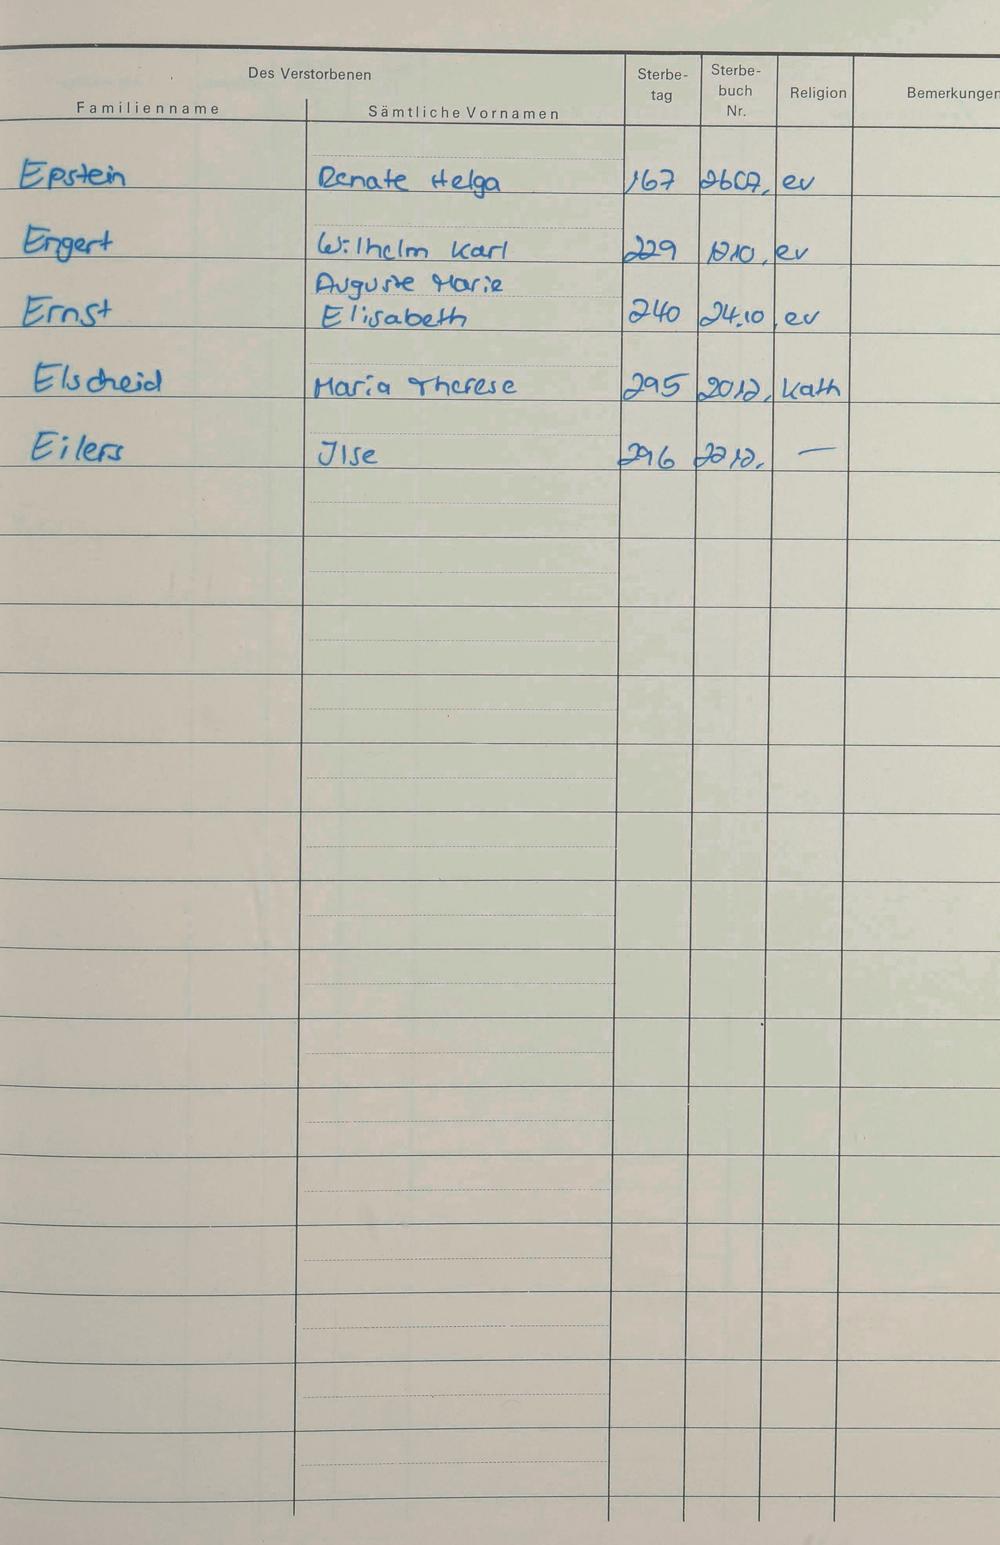 Des Verstorbenen
Familienname
Sämtliche Vornamen
Sterbe-
tag
Sterbe-
buch
Nr.
Religion
Bemerkungen
Epstein Renate Helga 167 2607. ev
Engert Wilhelm Karl 229 1210. ev
Auguste Marie
Ernst Elisabeth 240 24.10. ev
Elscheid Maria Therese 295 2012. Kath
Eilers Ilse 296 2212. —